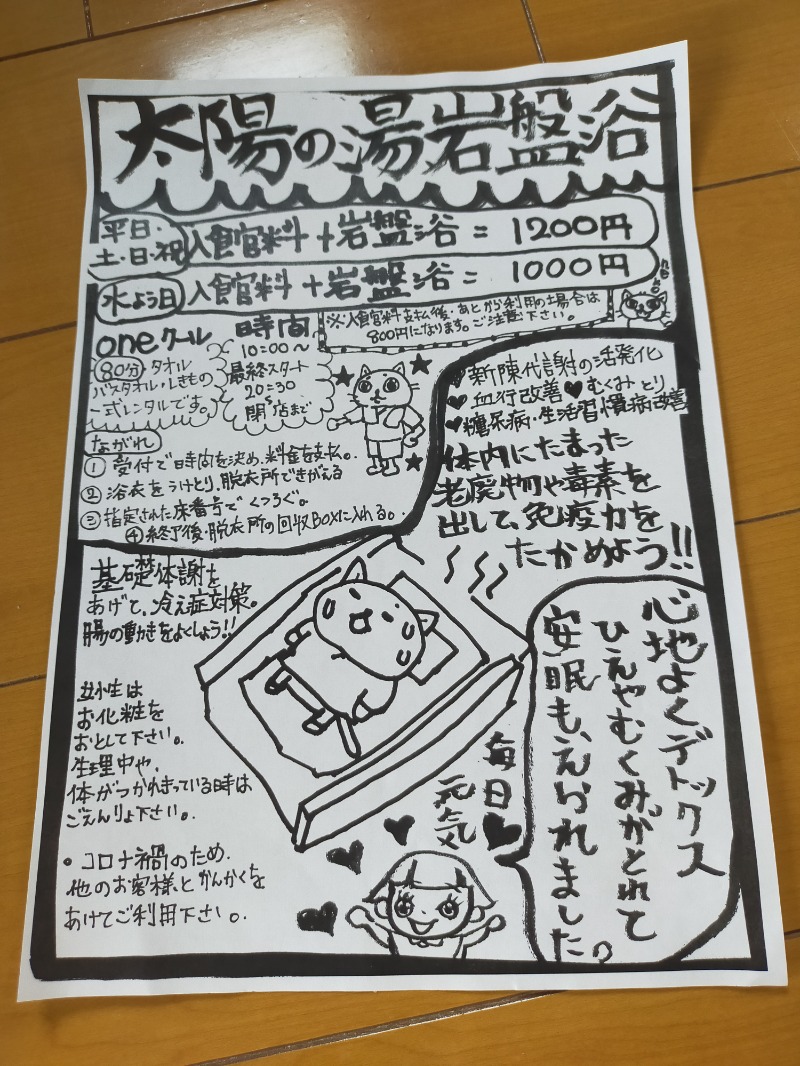 太陽の湯岩盤浴
平日・
土・日・祝
入館料+岩盤浴=1200円
水よう日
入館料+岩盤浴=1000円
※入館料支払後・あとから利用の場合は
800円になります。ご注意下さい。
oneクール
80分 タオル
バスタオル・しきもの
一式レンタルです。
時間
10:00〜
最終スタート
20:30
閉店まで
ながれ
① 受付で時間を決め、料金を支払。
② 浴衣をうけとり、脱衣所できがえる
③ 指定された床番号でくつろぐ。
④ 終了後・脱衣所の回収BOXに入れる。
♥新陳代謝の活発化
♥血行改善 ♥むくみとり
♥糖尿病・生活習慣病改善
体内にたまった
老廃物や毒素を
出して、免疫力を
たかめよう!!
基礎体謝を
あげて、冷え症対策。
腸の動きをよくしよう!!
女性は
お化粧を
おとして下さい。
生理中や、
体がつかれきっている時は
ごえんりょ下さい。
• コロナ禍のため、
他のお客様とかんかくを
あけてご利用下さい。
心地よくデトックス
ひえやむくみがとれて
安眠も、えられました。
毎日
元気